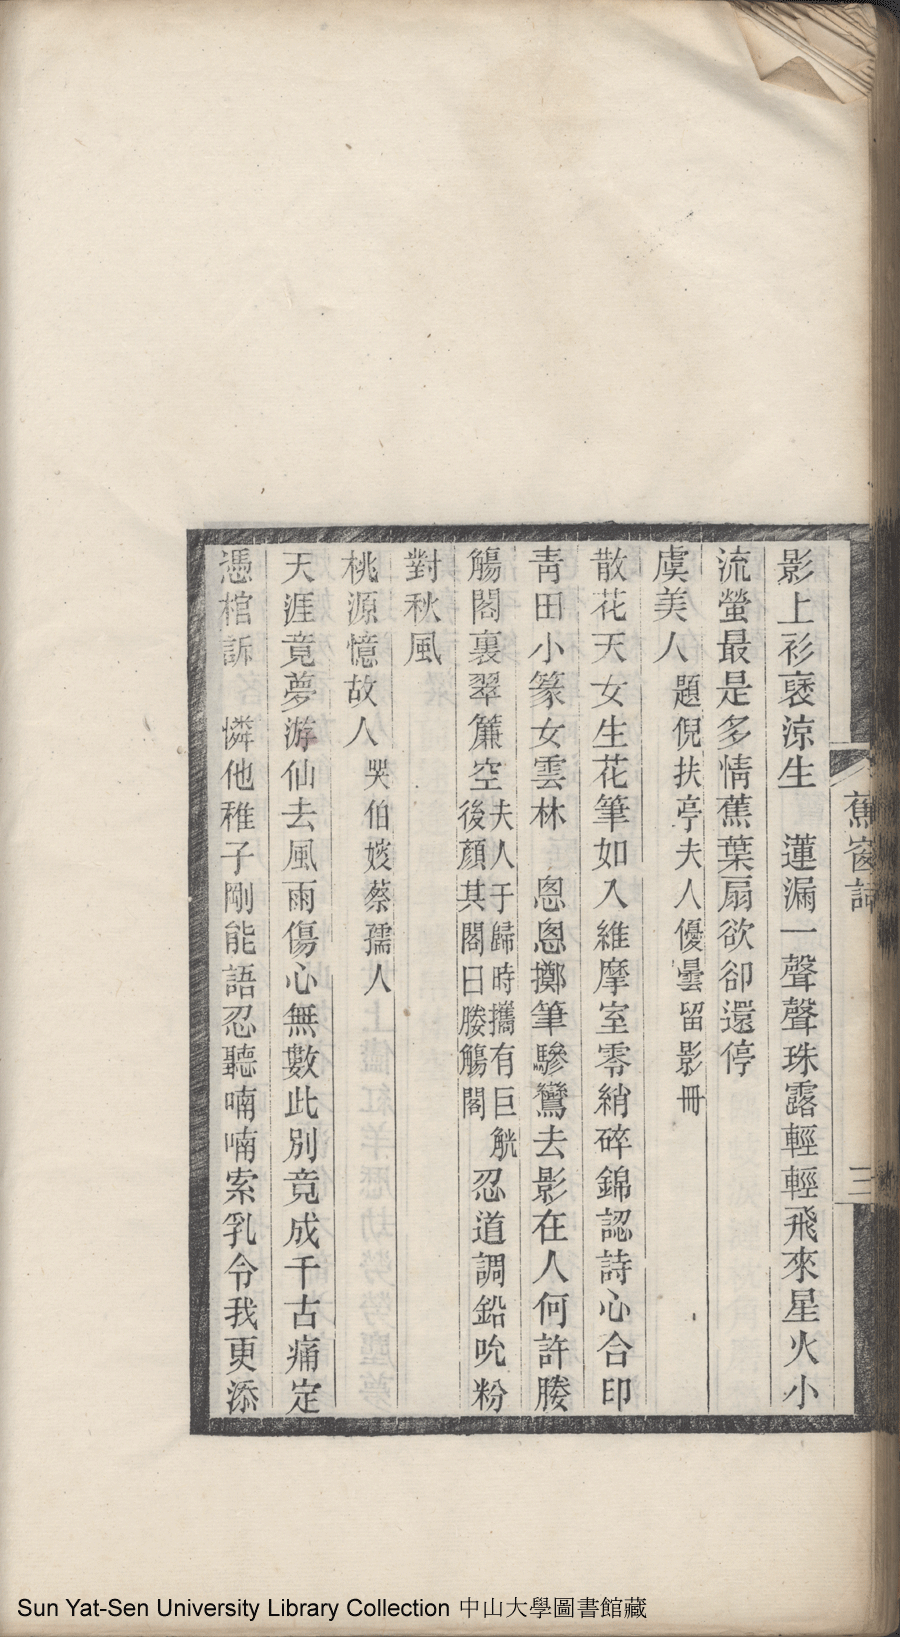 影上衫裦涼生　蓮漏一聲聲珠露輕輕飛來星火小
流螢最是多情蕉葉扇欲卻還停
虞美人題倪扶亭夫人優曇留影冊
散花天女生花筆如入維摩室零綃碎錦認詩心合印
青田小篆女雲林　悤悤擲筆驂鸞去影在人何許媵
觴閣裏翠簾空夫人于歸時攜有巨觥後顏其閣曰媵觴閣忍道調鉛吮粉
對秋風
桃源憶故人哭伯媖蔡孺人
天涯竟夢游仙去風雨傷心無數此別竟成千古痛定
憑棺訴　憐他稚子剛能語忍聽喃喃索乳令我更添
蕉窗詞
三
Sun Yat-Sen University Library Collection 中山大學圖書館藏